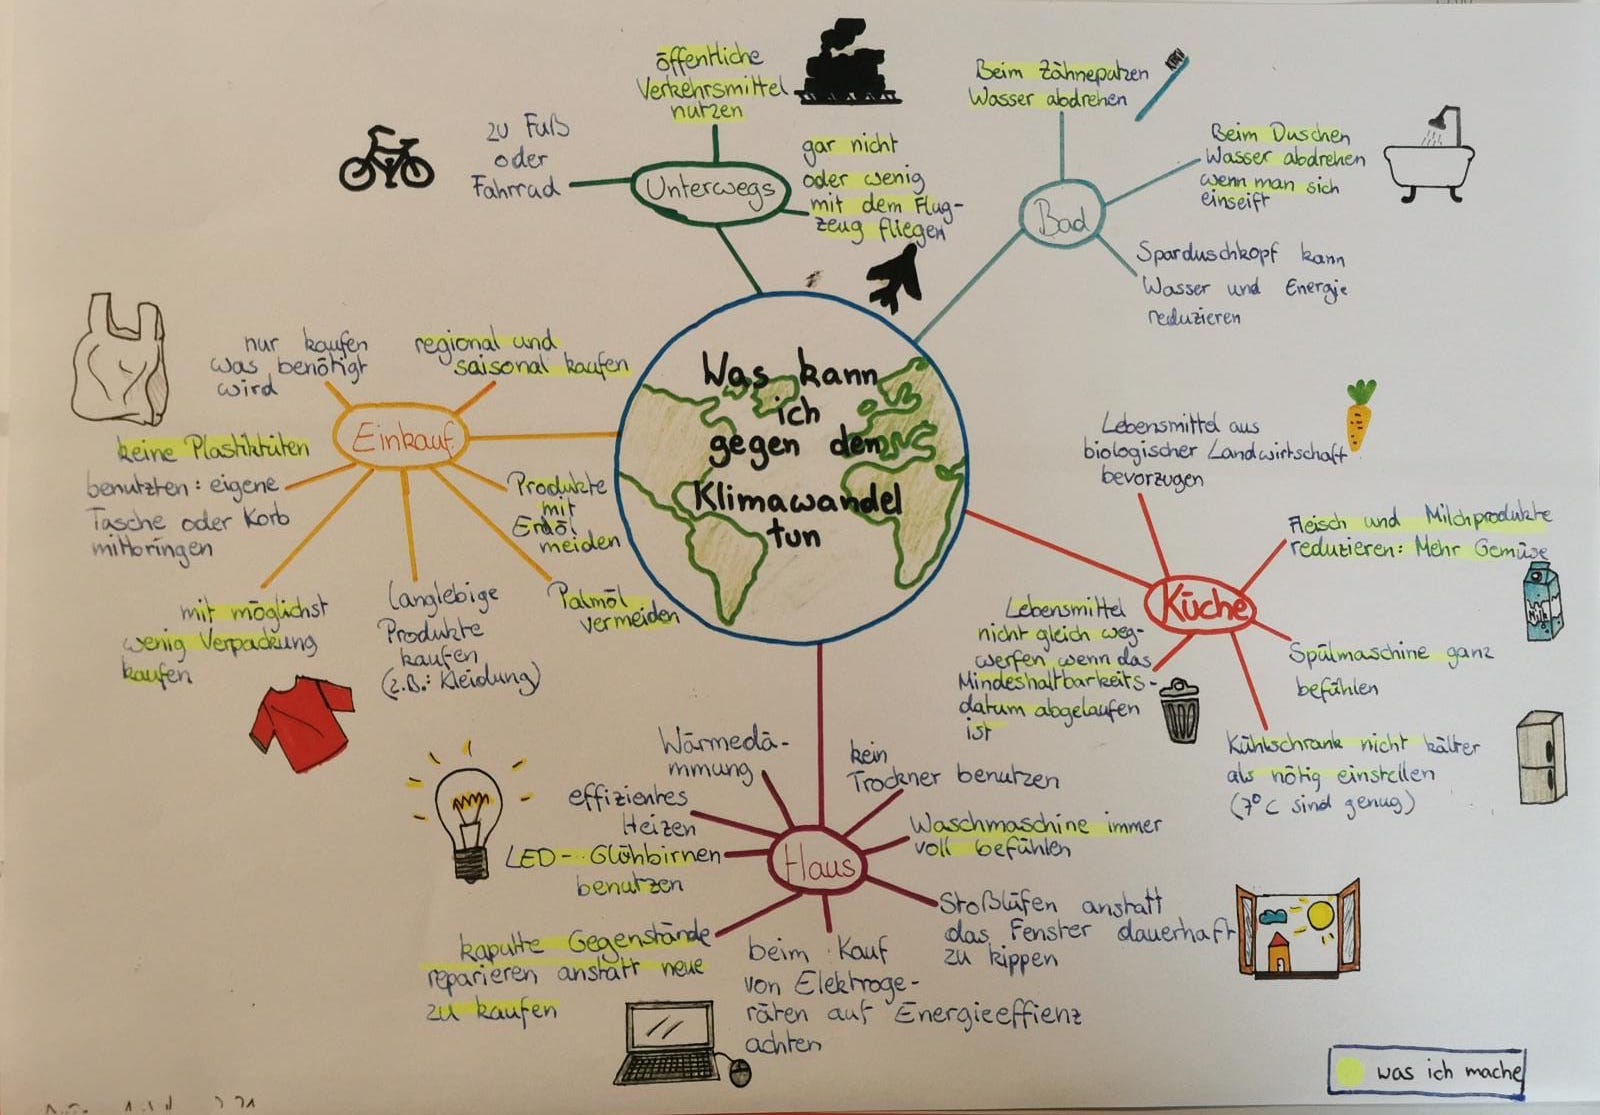 Was kann
ich
gegen dem
Klimawandel
tun
Unterwegs
öffentliche
Verkehrsmittel
nutzen
zu Fuß
oder
Fahrrad
gar nicht
oder wenig
mit dem Flug-
zeug fliegen
Bad
Beim Zähneputzen
Wasser abdrehen
Beim Duschen
Wasser abdrehen
wenn man sich
einseift
Sparduschkopf kann
Wasser und Energie
reduzieren
Einkauf
nur kaufen
was benötigt
wird
regional und
saisonal kaufen
keine Plastiktüten
benutzten: eigene
Tasche oder Korb
mitbringen
mit möglichst
wenig Verpackung
kaufen
langlebige
Produkte
kaufen
(z.B.: Kleidung)
Palmöl
vermeiden
Produkte
mit
Erdöl
meiden
Küche
Lebensmittel aus
biologischer Landwirtschaft
bevorzugen
Fleisch und Milchprodukte
reduzieren: Mehr Gemüse
Milk
Spülmaschine ganz
befühlen
Kühlschrank nicht kälter
als nötig einstellen
(7°C sind genug)
Lebensmittel
nicht gleich weg-
werfen wenn das
Mindeshaltbarkeits-
datum abgelaufen
ist
Haus
Wärmedä-
mmung
effizientes
Heizen
LED-Glühbirnen
benutzen
kaputte Gegenstände
reparieren anstatt neue
zu kaufen
beim Kauf
von Elektroge-
räten auf Energieeffienz
achten
Stoßlüfen anstatt
das Fenster dauerhaft
zu kippen
Waschmaschine immer
voll befühlen
kein
Trockner benutzen
was ich mache